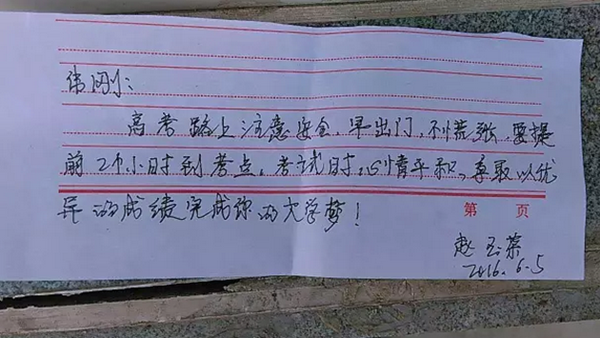 伟刚:
高考路上注意安全,早出门,不慌张,要提
前2个小时到考点,考试时,心情平和,争取以优
异的成绩完成你的大学梦!
第 页
赵玉荣
2016.6.5